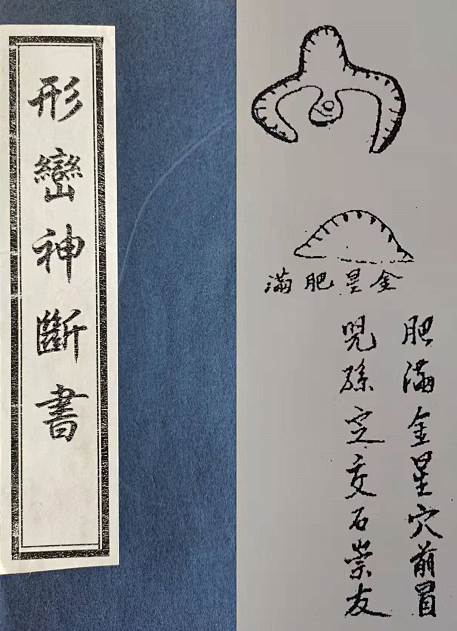 形巒神斷書
金星肥滿
肥滿金星穴前冒
兒孫定交石崇友